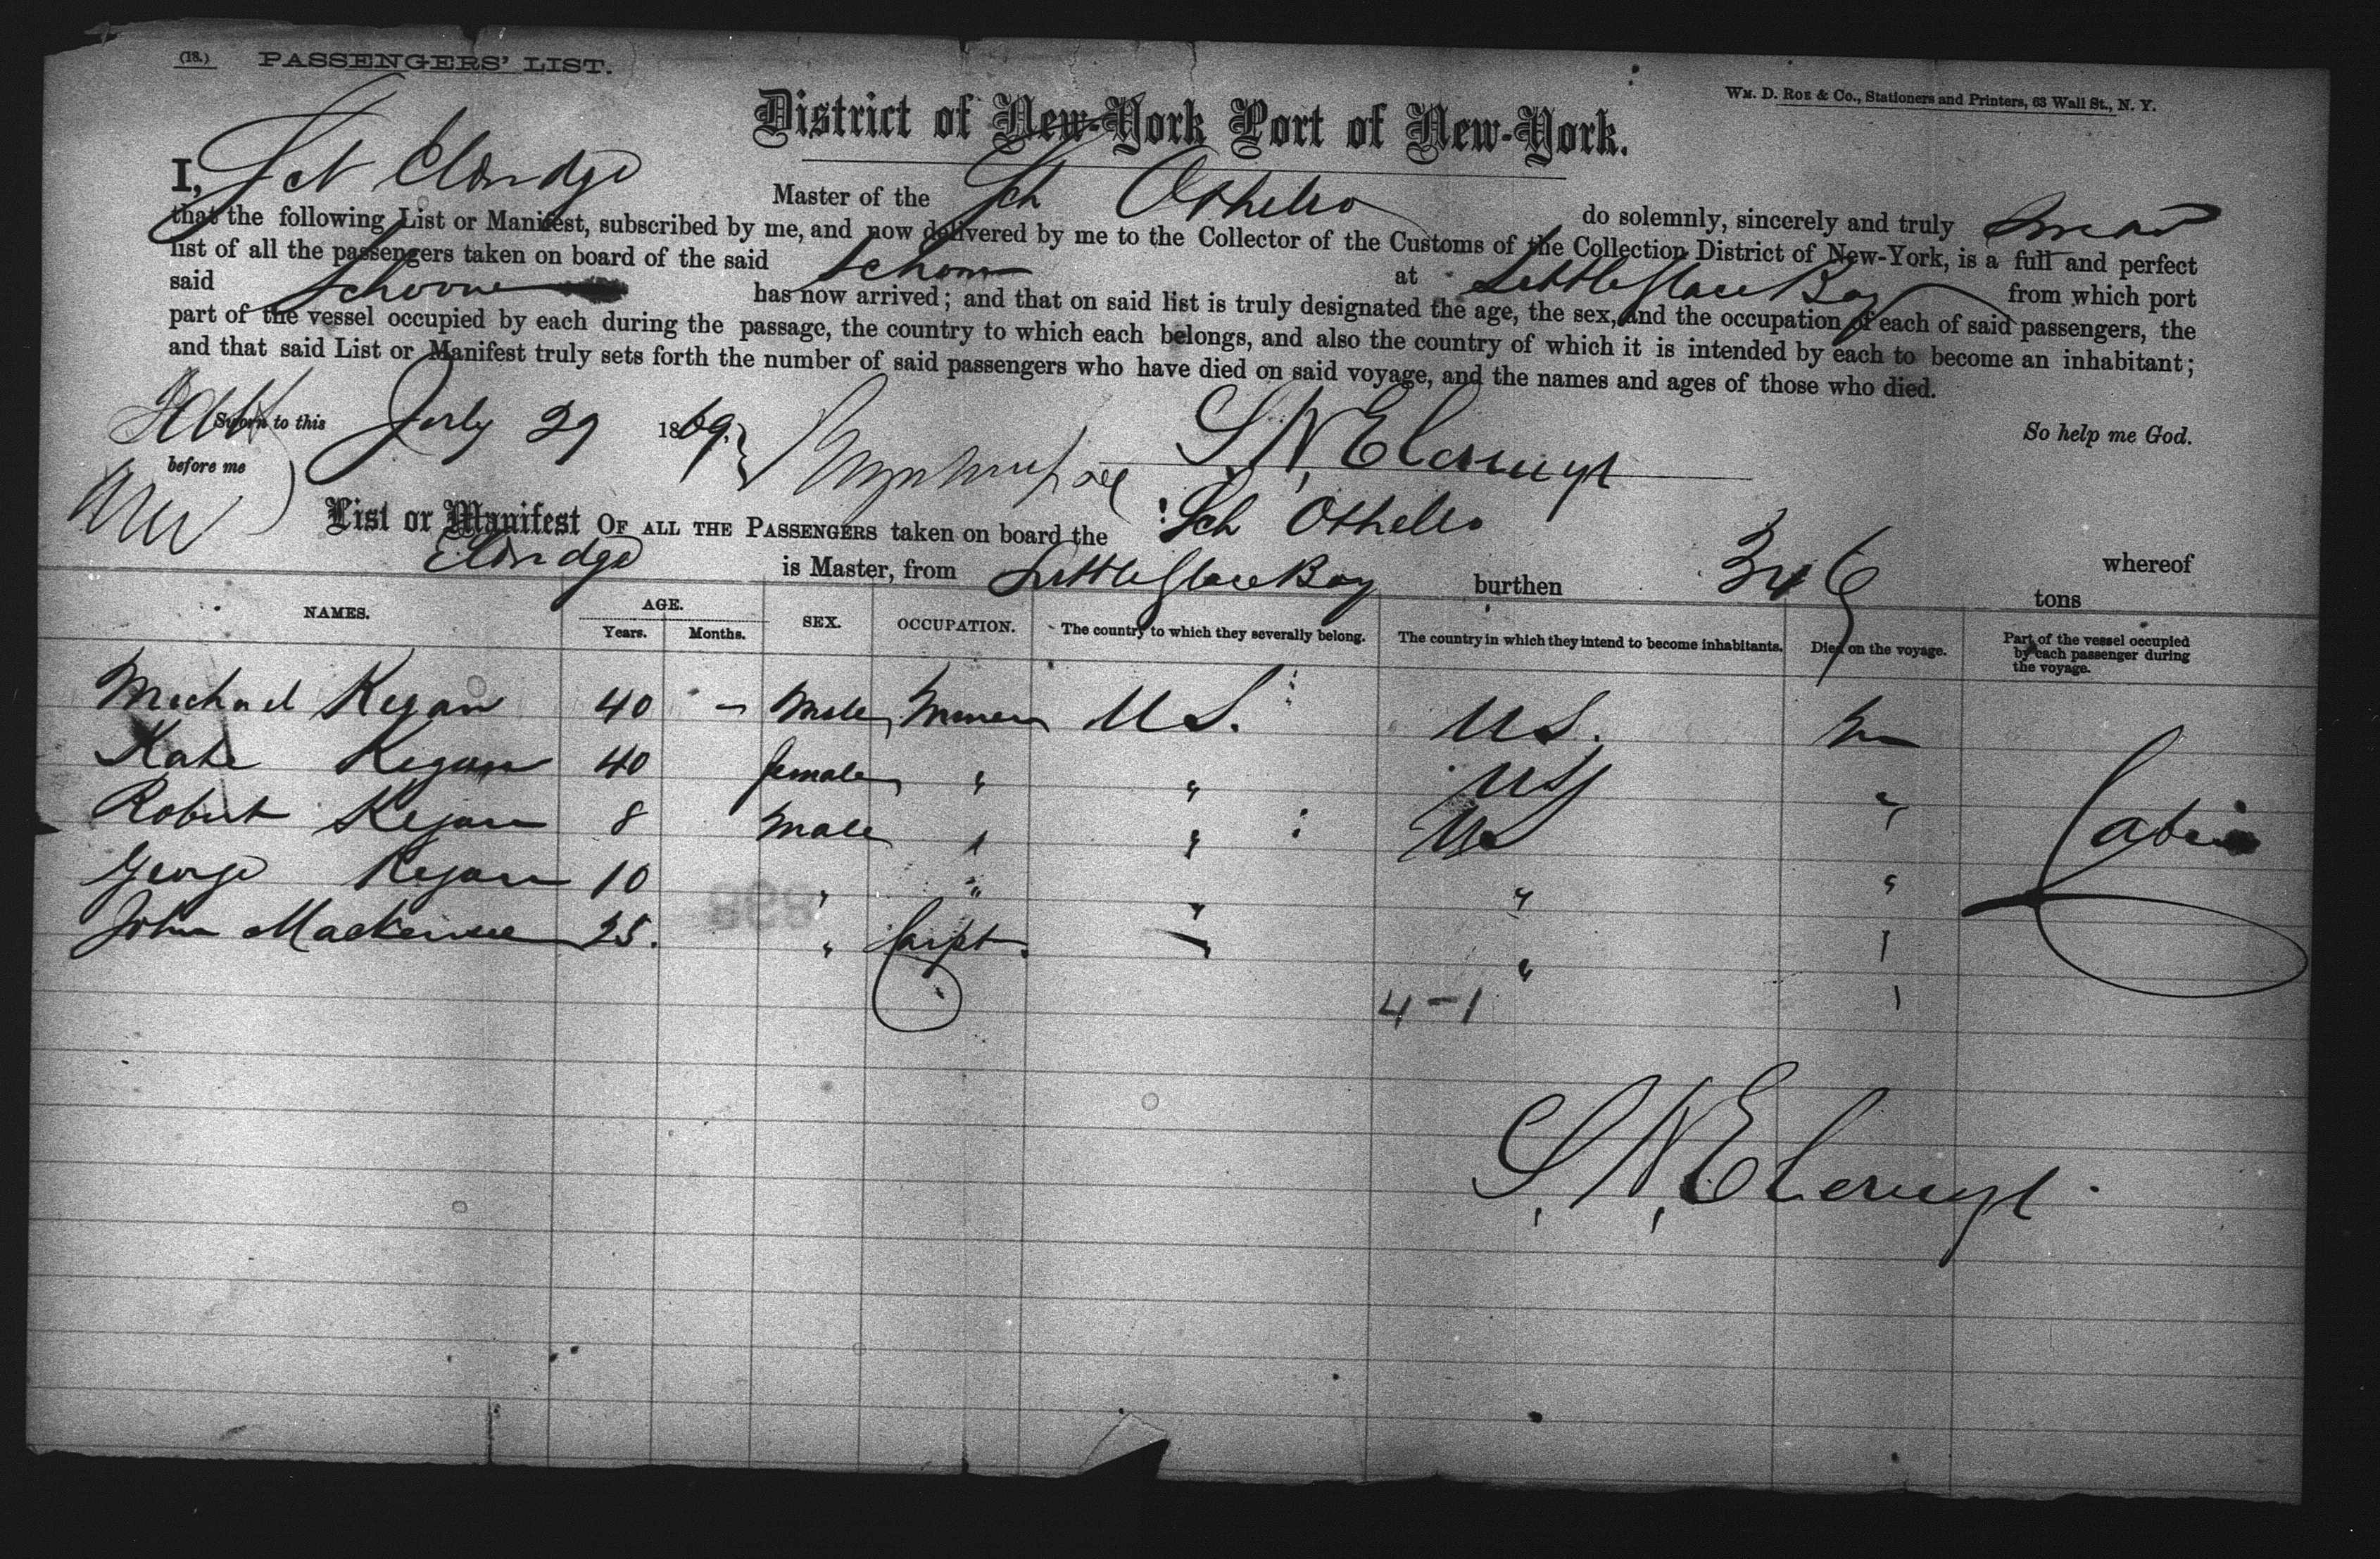 (18.) PASSENGERS' LIST.
WM. D. ROE & Co., Stationers and Printers, 63 Wall St., N. Y.
District of New-York Port of New-York.
I, Eldridge Master of the Sch Othello do solemnly, sincerely and truly swear
that the following List or Manifest, subscribed by me, and now delivered by me to the Collector of the Customs of the Collection District of New-York, is a full and perfect
list of all the passengers taken on board of the said Schooner at Little Glace Bay from which port
said Schooner has now arrived; and that on said list is truly designated the age, the sex, and the occupation of each of said passengers, the
part of the vessel occupied by each during the passage, the country to which each belongs, and also the country of which it is intended by each to become an inhabitant;
and that said List or Manifest truly sets forth the number of said passengers who have died on said voyage, and the names and ages of those who died.
So help me God.
Sworn to this July 29 1869.
before me
List or Manifest OF ALL THE PASSENGERS taken on board the Sch Othello whereof
Eldridge is Master, from Little Glace Bay burthen 346 tons
NAMES. AGE. Years. Months. SEX. OCCUPATION. The country to which they severally belong. The country in which they intend to become inhabitants. Died on the voyage. Part of the vessel occupied by each passenger during the voyage.
Michael Kegan 40 - Male Miner U S. U S. no
Kate Kegan 40 female " " US "
Robert Kegan 8 Male " " US " Cabin
George Kegan 10 " " " " "
John Mackensee 25. " Carpt. " " "
4-1
868